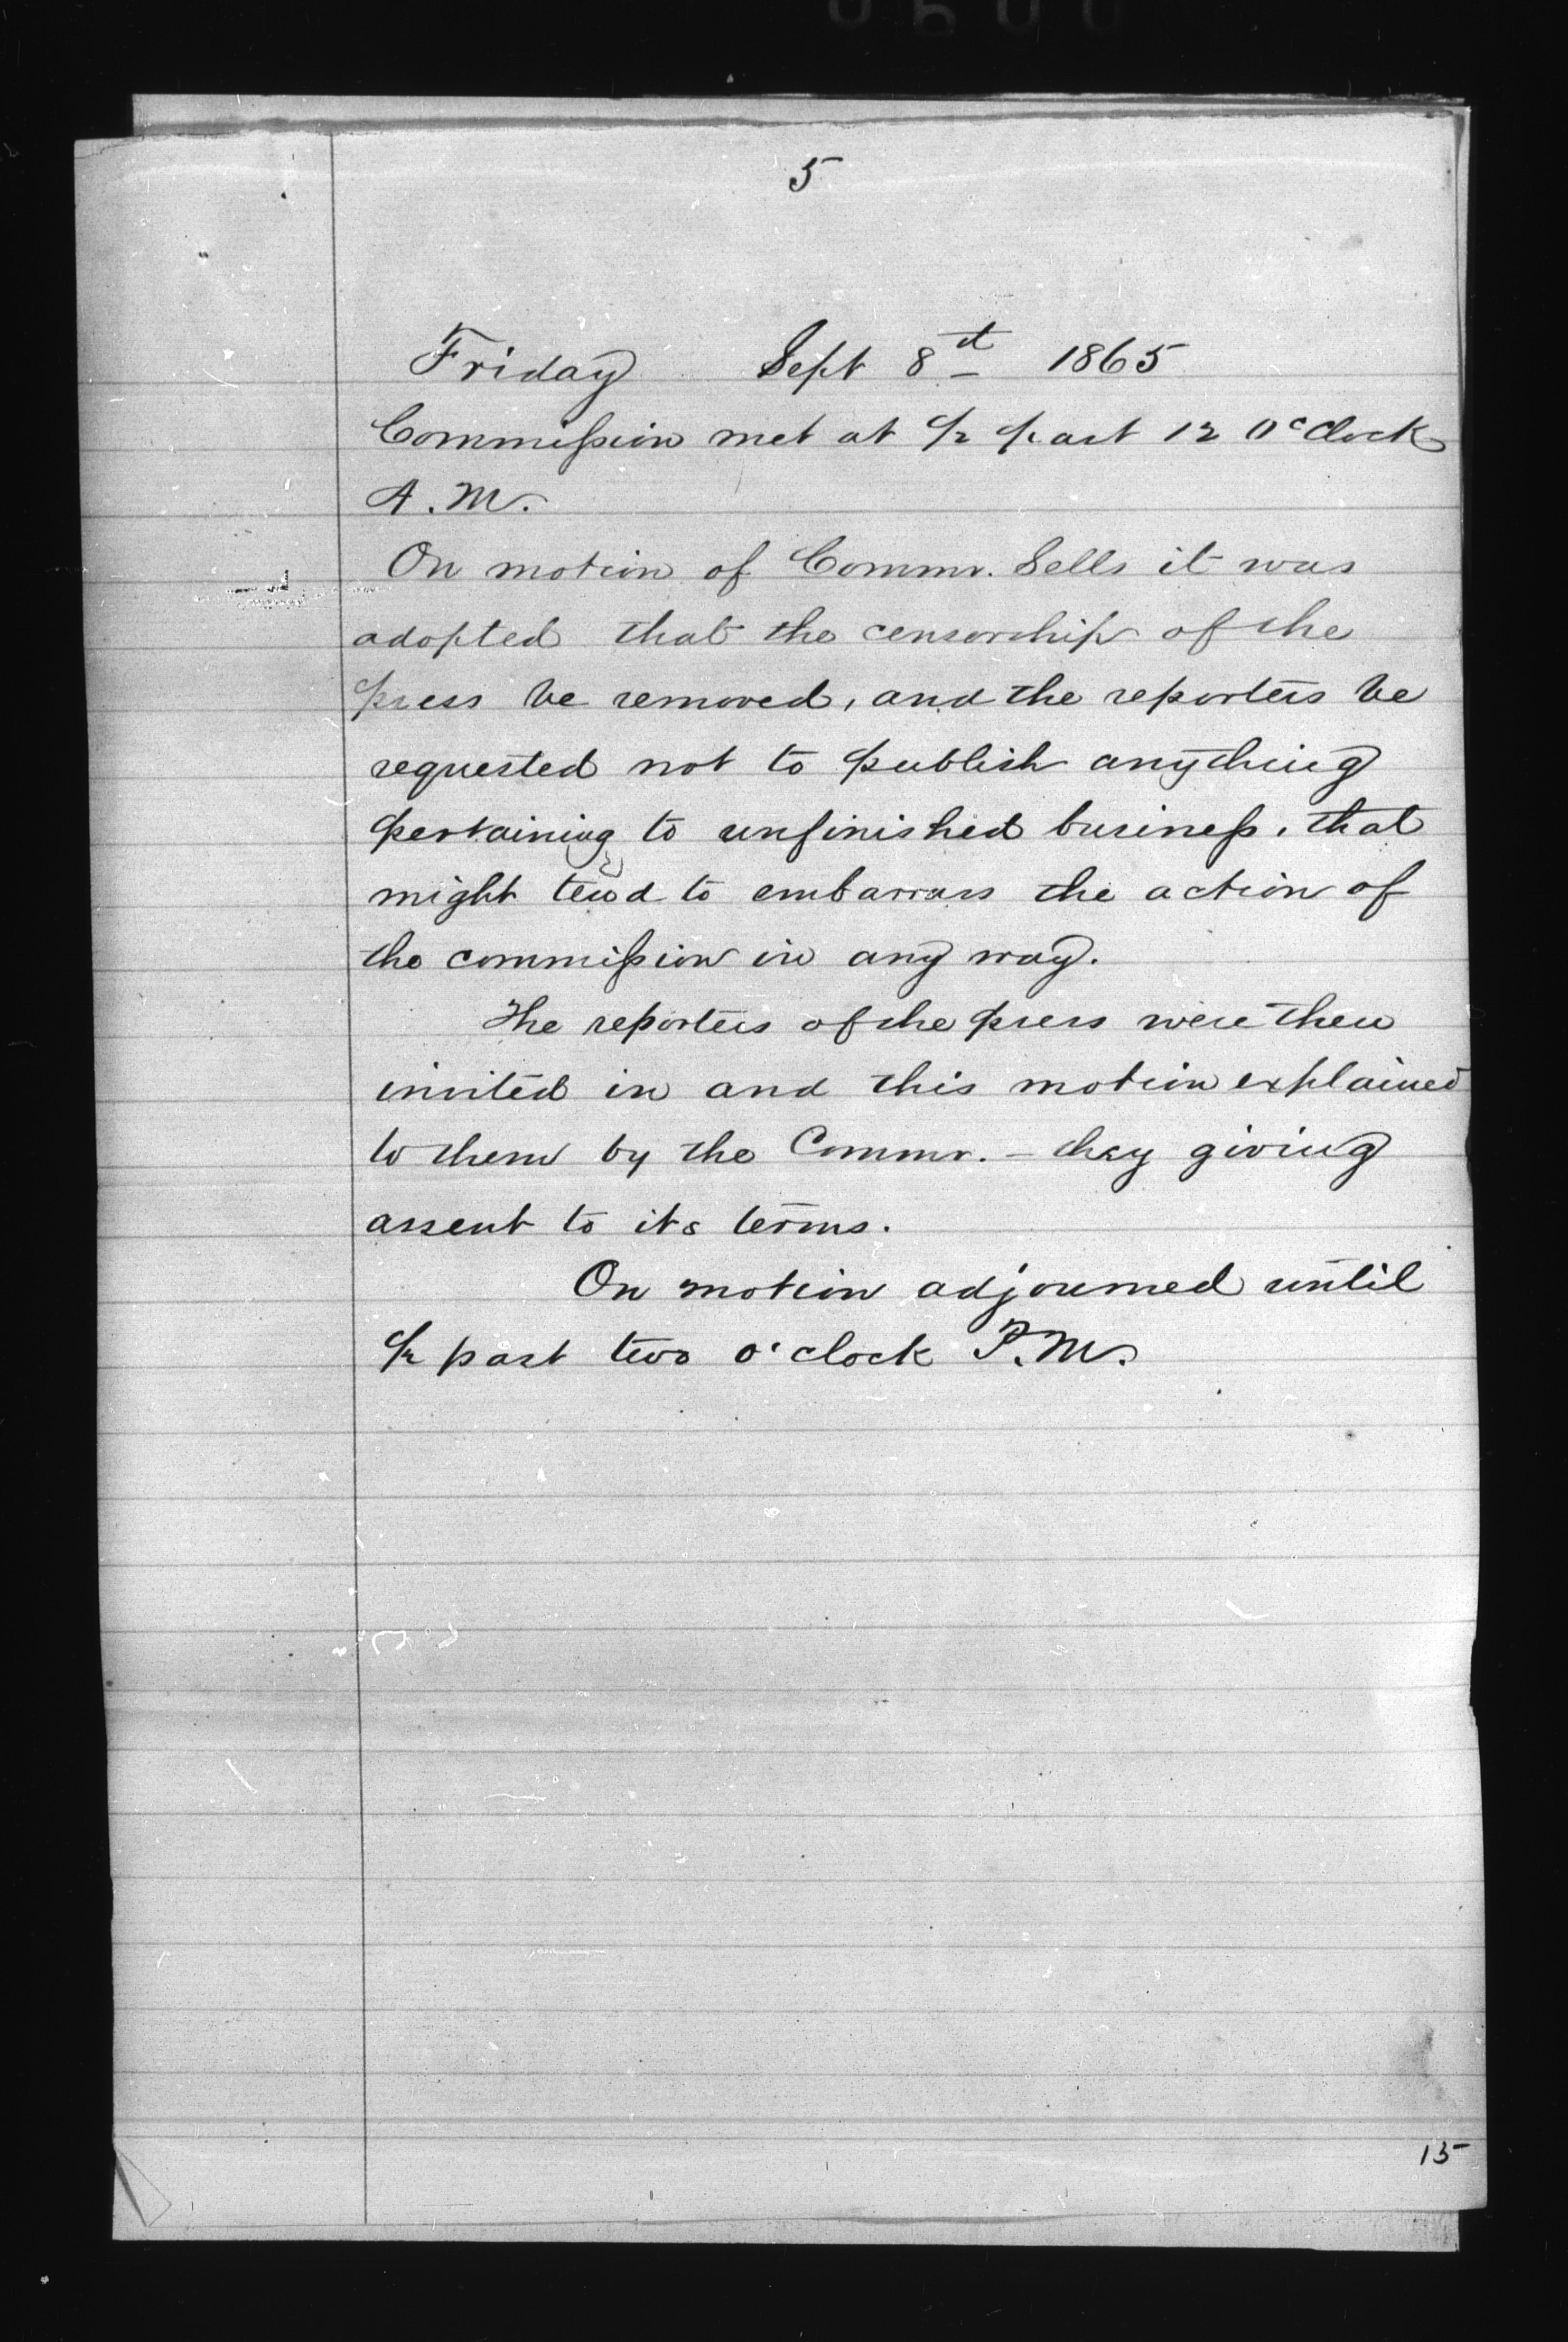 5
Friday Sept 8th 1865
Commission met at ½ past 12 O'Clock
A.M.
On motion of Commr. Sells it was
adopted that the censorship of the
press be removed, and the reporters be
requested not to publish anything
pertaining to unfinished business, that
might tend to embarrass the action of
the commission in any way.
The reporters of the press were then
invited in and this motion explained
to them by the Commr. – they giving
assent to its terms.
On motion adjourned until
½ past two o'clock P.M.
15